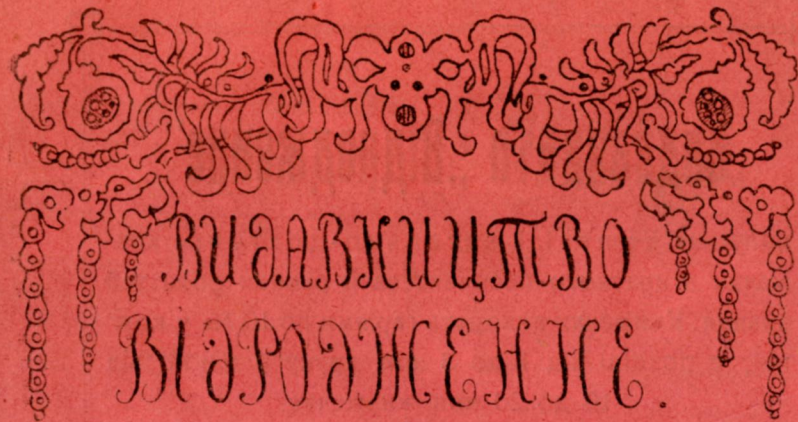 ВИДАВНИЦТВО
ВІДРОДЖЕННЕ.